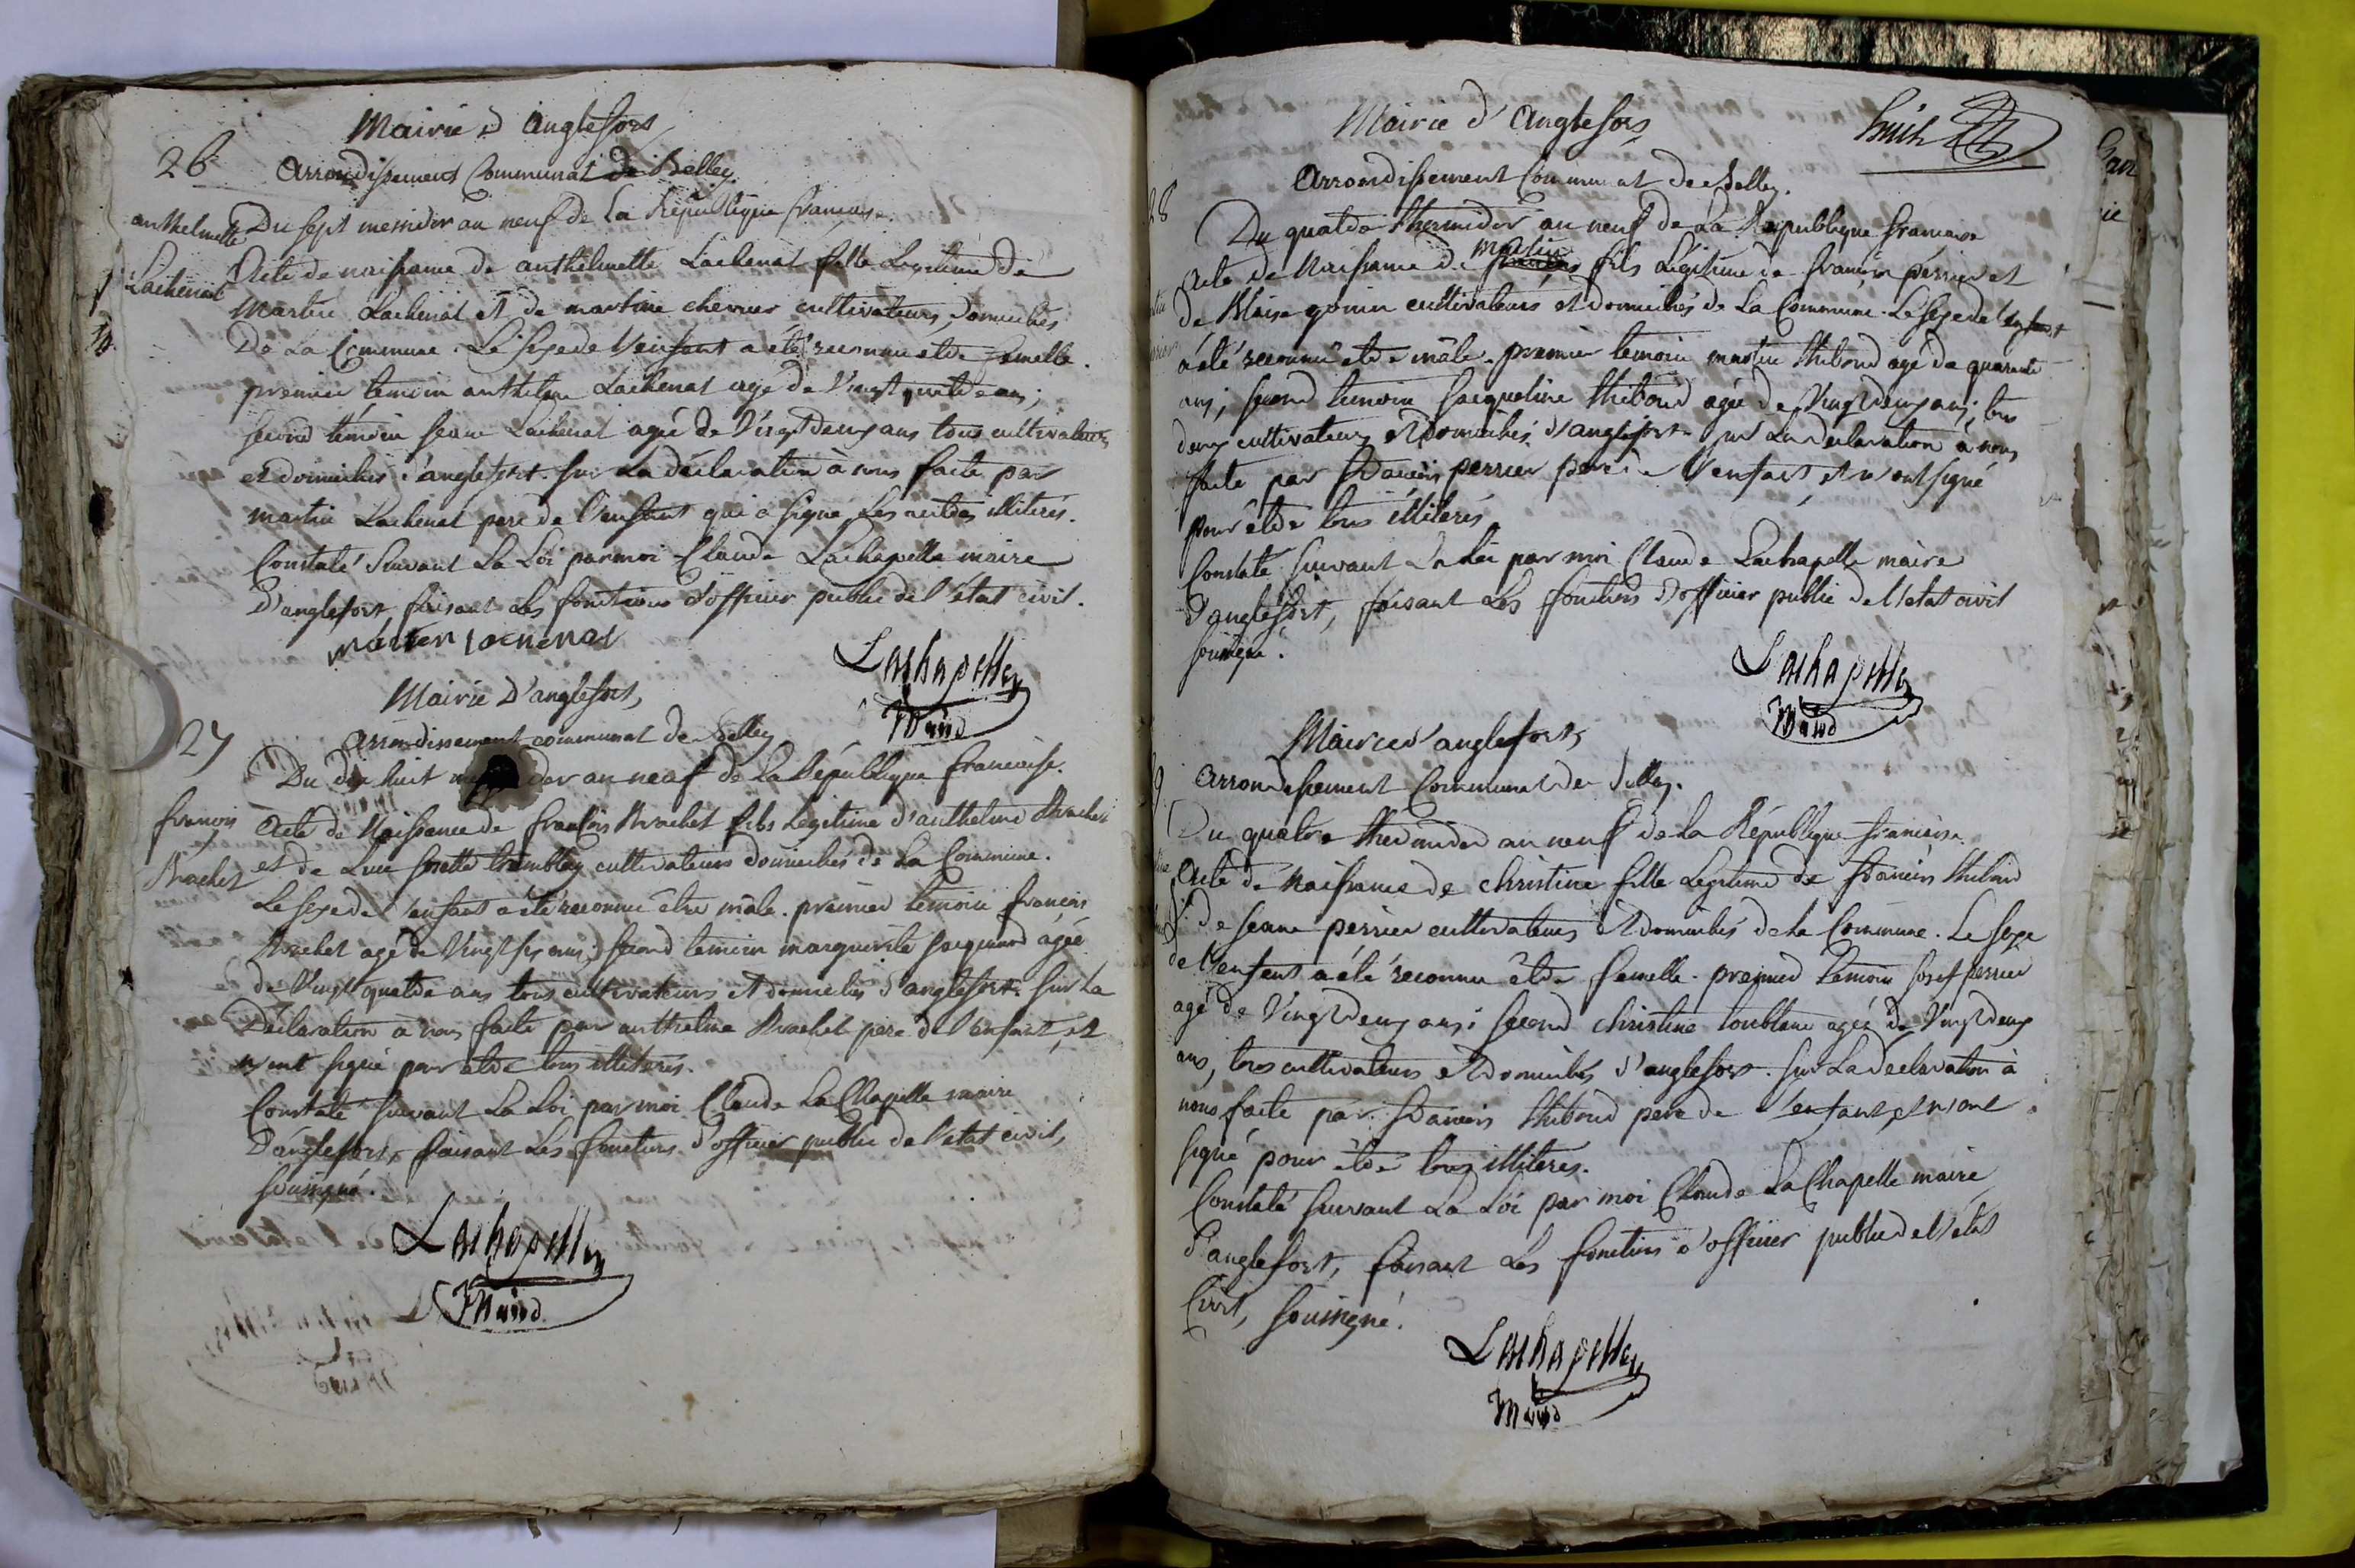 Mairie d'anglefort
26
arrondissement Communal de Belley.
anthelmette
Lachenal
Du sept messidor an neuf de la République francaise.
Acte de naissance de anthelmette Lachenal fille Legitime de
Martin Lachenal et de martine chevrier cultivateurs, domiciliés
De La Commune. Le sexe de l'enfant a été reconnu etre femelle.
premier temoin anthelme Lachenat age de Vingt quatre ans;
second témoin jeane Lachenat agée de Vingt Deux ans tous cultivateurs
et domiciliés d'anglefort. sur La déclaration à nous faite par
martin Lachenal pere de l'enfant qui a signé Les autres illiterés.
Constaté Suivant La Loi par moi Claude Lachapelle maire
D'anglefort, faisant Les fonctions d'officier public de l'état civil.
marten lachenal
Lachapelle
Maire
Mairie D'anglefort,
27
arrondissement communal de Belley
francois
Brachet
Du dix huit dor an neuf de La République francaise.
Acte de Naissance de francois Brachet fils Legitime d'anthelme Brachet
et de Luce josette tremblay cultivateurs domiciliés de La Commune.
Le sexe de l'enfant a été reconnu être mâle. premier temoin francois
Brachet agé de Vingt six ans; second temoin marguerite jacquard agée
de Vingt quatre ans tous cultivateurs et domiciliés d'anglefort. sur La
Déclaration à nous faite par anthelme Brachet pere de l'enfant, et
n'ont signé pour etre tous illiterés.
Constaté suivant La Loi par moi Claude La Chapelle maire
D'anglefort, faisant Les fonctions d'officier public de l'etat civil,
soussigné.
Lachapelle
Maire
Mairie d'anglefort,
huit
arrondissement Communal de Belley.
28
Du quatre thermidor an neuf de La République francaise
Acte de Naissance de martin fils Légitime de francois perrier et
de Blaise gonin cultivateurs et domiciliés de La Commune. Le sexe de l'enfant
a été reconnu etre mâle. premier temoin martin thiboud agé de quarante
ans; second temoin jacqueline thiboud agée de Vingt Deux ans; tous
deux cultivateurs et domiciliés d'anglefort. sur La declaration à nous
faite par francois perrier pere de l'enfant, et n'ont signé
pour être tous illiterés
Constaté suivant La Loi par moi Claude Lachapelle maire
d'anglefort, faisant Les fonctions d'officier public de l'etat civil
soussigné.
Lachapelle
Maire
Mairie d'anglefort,
arrondissement Communal de Belley.
9
Du quatre thermidor an neuf de la République francaise.
Acte de Naissance de christine fille Legitime de francois thiboud
de jeane perrier cultivateurs et domiciliés de la Commune. Le sexe
de l'enfant a été reconnu être femelle. premier temoin josef perrier
agé de Vingt deux ans; second christine toublanc agée de Vingt deux
ans, tous cultivateurs et domiciliés d'anglefort. sur La declaration à
nous faite par francois thiboud pere de l'enfant, et n'ont
signé pour être tous illiterés.
Constaté suivant La Loi par moi Claude LaChapelle maire
d'anglefort, faisant Les fonctions d'officier public de l'état
Civil, soussigné.
Lachapelle
Maire